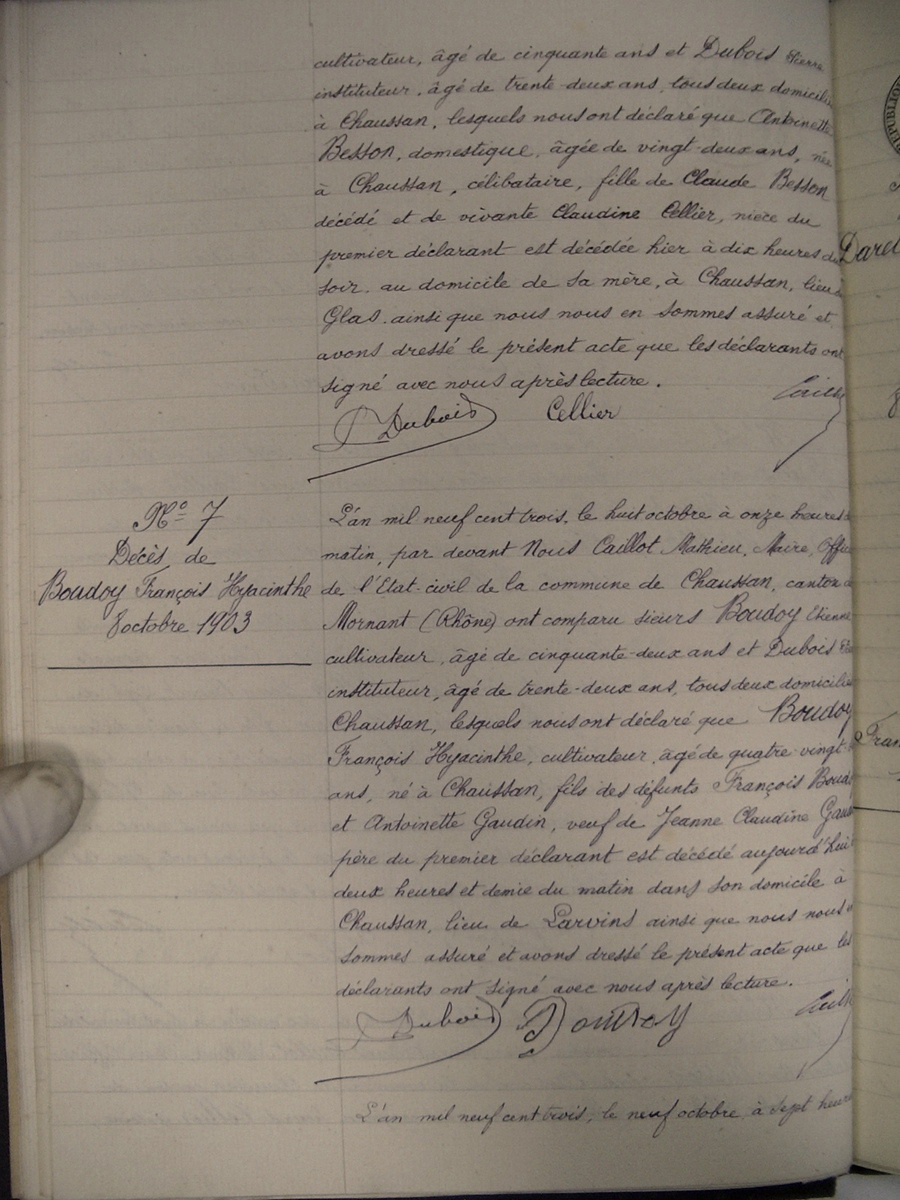 cultivateur, âgé de cinquante ans et Dubois Pierre
instituteur, âgé de trente-deux ans, tous deux domicili
à Chaussan, lesquels nous ont déclaré que Antoinette
Besson, domestique, âgée de vingt-deux ans, née
à Chaussan, célibataire, fille de Claude Besson
décédé et de vivante Claudine Cellier, nièce du
premier déclarant est décédée hier à dix heures du
soir au domicile de sa mère, à Chaussan, lieu
Glas. ainsi que nous nous en sommes assuré et
avons dressé le présent acte que les déclarants ont
signé avec nous après lecture.
Dubois Cellier
Nº 7
Décès de
Boudoy François Hyacinthe
8 octobre 1903
L'an mil neuf cent trois, le huit octobre à onze heures
matin, par devant Nous Caillot Mathieu, Maire, Offic
de l'Etat-civil de la commune de Chaussan, canton de
Mornant (Rhône) ont comparu sieurs Boudoy Etienne
cultivateur, âgé de cinquante-deux ans et Dubois
instituteur, âgé de trente-deux ans, tous deux domicilié
Chaussan, lesquels nous ont déclaré que Boudoy
François Hyacinthe, cultivateur, âgé de quatre-vingt
ans, né à Chaussan, fils des défunts François Boud
et Antoinette Gaudin, veuf de Jeanne Claudine
père du premier déclarant est décédé aujourd'hui
deux heures et demie du matin dans son domicile à
Chaussan, lieu de Larvins ainsi que nous nous
sommes assuré et avons dressé le présent acte que les
déclarants ont signé avec nous après lecture.
Dubois Boudoy
L'an mil neuf cent trois, le neuf octobre, à sept heure